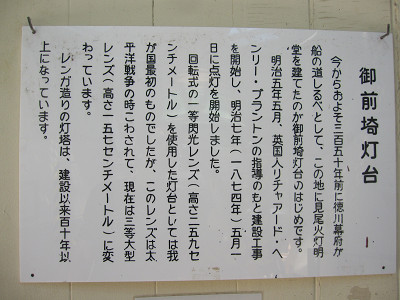 御前埼灯台
今からおよそ三百五十年前に徳川幕府が
船の道しるべとして、この地に見尾火灯明
堂を建てたのが御前埼灯台のはじめです。
明治五年五月、英国人リチャアード・ヘ
ンリー・ブラントンの指導のもと建設工事
を開始し、明治七年(一八七四年)五月一
日に点灯を開始しました。
回転式の一等閃光レンズ(高さ二五九セ
ンチメートル)を使用した灯台としては我
が国最初のものでしたが、このレンズは太
平洋戦争の時こわされて、現在は三等大型
レンズ(高さ一五七センチメートル)に変
わっています。
レンガ造りの灯塔は、建設以来百十年以
上になっています。